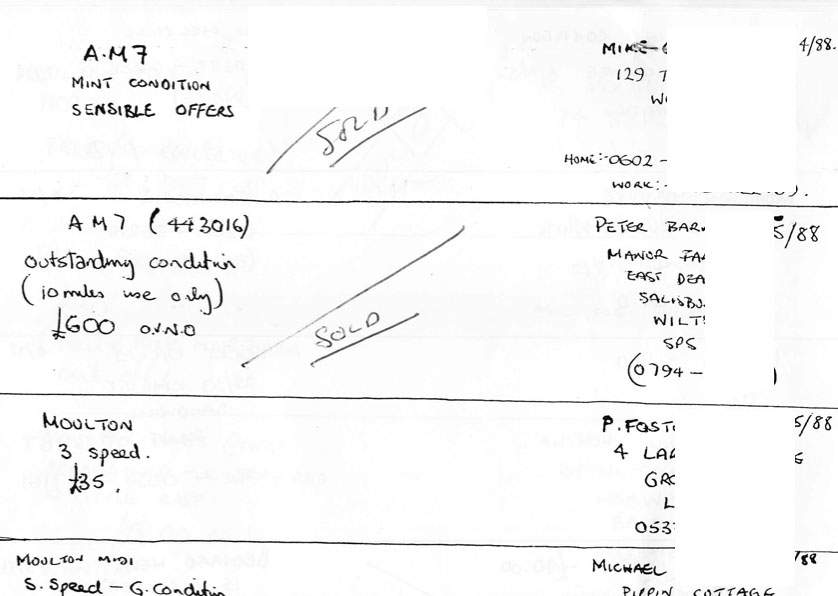 A.M7
MINT CONDITION
SENSIBLE OFFERS
SOLD
MIKE
4/88.
129
HOME:-0602 -
WORK:-
A M 7 (443016)
outstanding condition
(10 miles use only)
£600 o.v.n.o
SOLD
PETER BAR
5/88
MANOR
EAST DEA
SALISBU
WILT
SP5
(0794 - )
MOULTON
3 speed.
£35.
P. FOST
5/88
4 LAR
GRO
L
053
MOULTON MIDI
S. Speed - G. Condition
MICHAEL
/88
PIPPIN COTTAGE